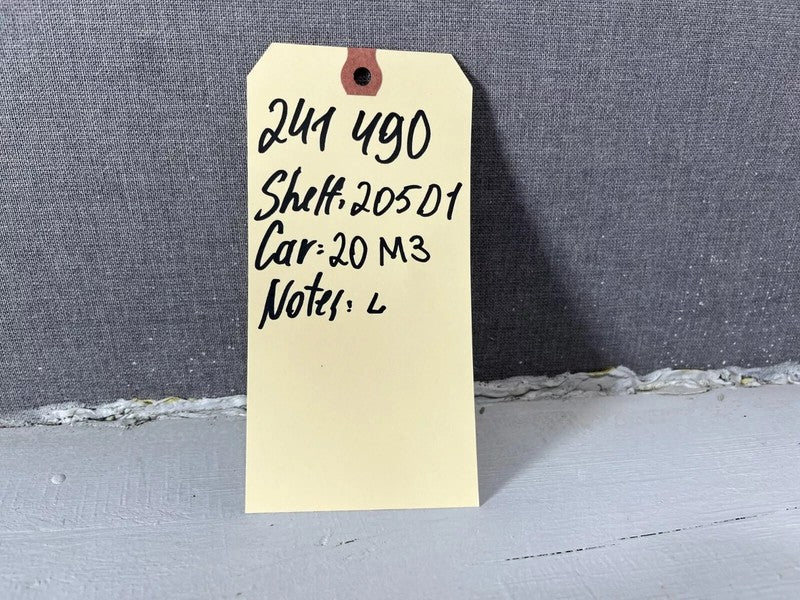 241 490
Shelf: 205D1
Car: 20 M3
Notes: L